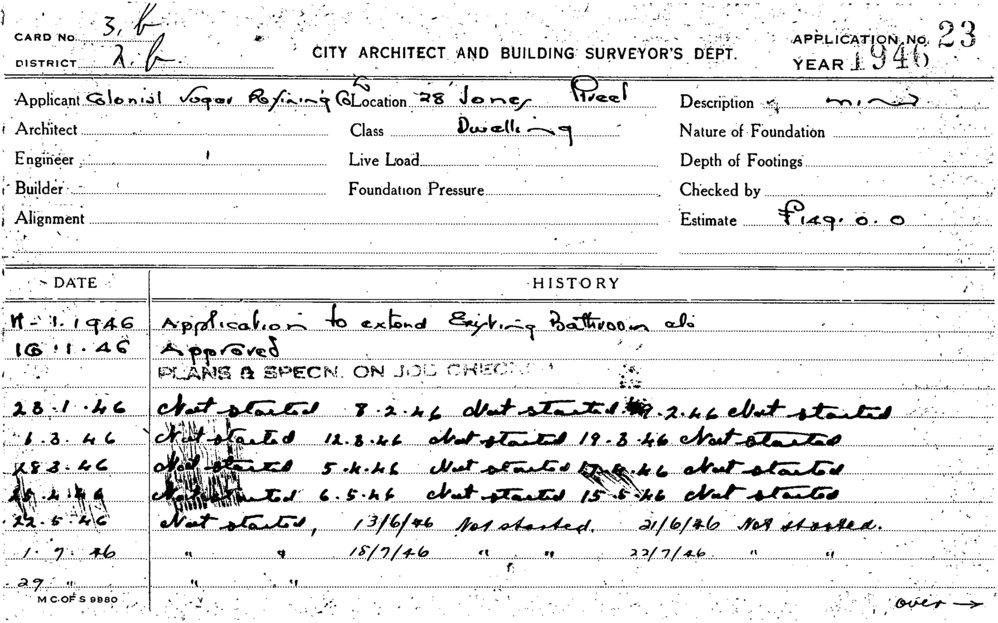 CARD No. 3. b
DISTRICT 2. b.
CITY ARCHITECT AND BUILDING SURVEYOR'S DEPT.
APPLICATION No. 23
YEAR 1946
Applicant Colonial Sugar Refining Co Location 28 Jones Street Description
Architect Class Dwelling Nature of Foundation
Engineer Live Load Depth of Footings
Builder Foundation Pressure Checked by
Alignment Estimate £149. 0. 0
DATE HISTORY
1. 1946 Application to extend Existing Bathroom
16. 1. 46 Approved
PLANS & SPECN. ON JOB CHECKED
23. 1. 46 Not started 8. 2. 46 Not started 2. 46 Not started
1. 3. 46 Not started 12. 3. 46 Not started 19. 3. 46 Not started
28 3. 46 Not started 5. 4. 46 Not started 46 Not started
4. 46 Not started 6. 5. 46 Not started 15. 5. 46 Not started
22. 5. 46 Not started, 13/6/46 Not started. 21/6/46 Not started.
1. 7. 46 " " 15/7/46 " " 22/7/46 " "
29 " " "
M C. OF S 9980
over →